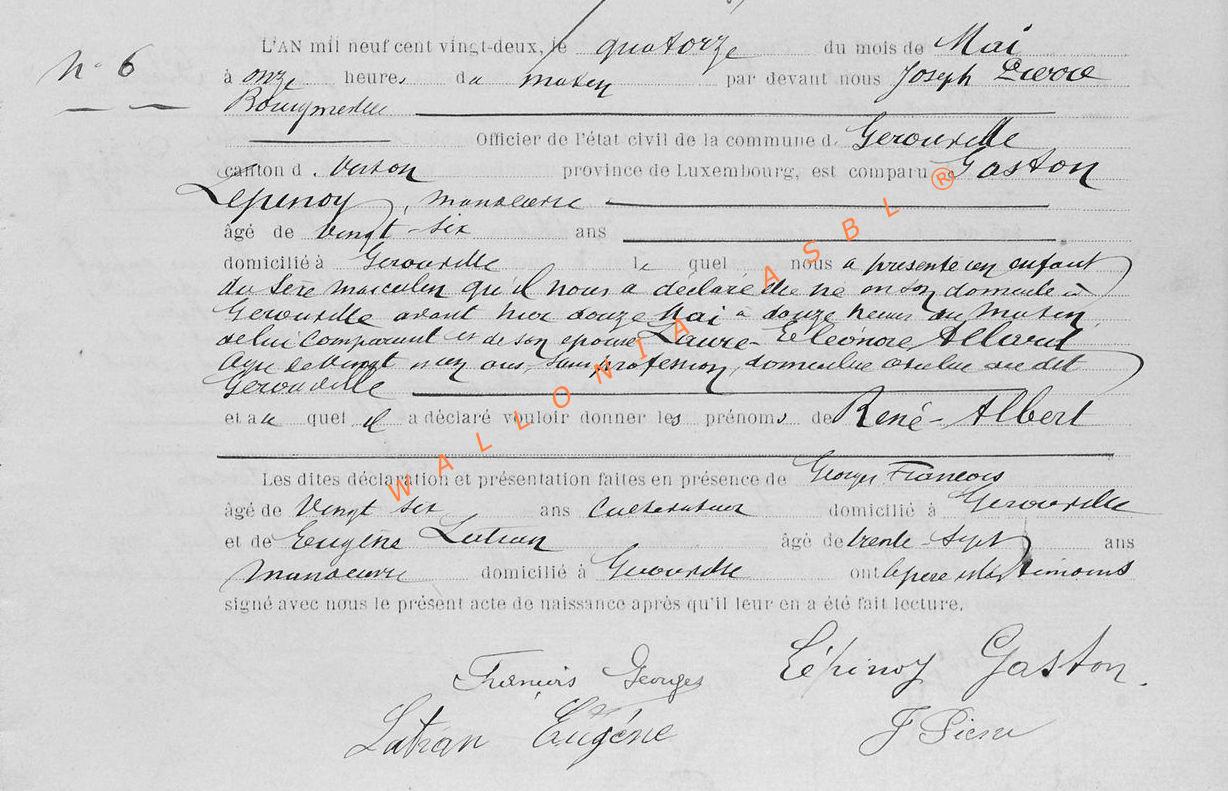 L'AN mil neuf cent vingt-deux, le quatorze du mois de Mai
N° 6
à onze heures du matin par devant nous Joseph Pierre
Bourgmestre
Officier de l'état civil de la commune d. Gerouville
canton d. Virton province de Luxembourg, est comparu Gaston
Lepinoy, manoeuvre
âgé de vingt-six ans
domicilié à Gerouville le quel nous a présenté un enfant
du sexe masculin qu'il nous a déclaré être né en son domicile à
Gerouville avant hier douze Mai à douze heures du matin,
de lui comparant et de son épouse Laure-Eléonore Allard
agée de vingt un ans, sans profession, domiciliée au dit
Gerouville
et au quel il a déclaré vouloir donner les prénoms de René-Albert
Les dites déclaration et présentation faites en présence de Georges François
âgé de vingt six ans cultivateur domicilié à Gerouville
et de Eugène Lutran âgé de trente-sept ans
manoeuvre domicilié à Gerouville ont le père et les témoins
signé avec nous le présent acte de naissance après qu'il leur en a été fait lecture.
Georges Lépinoy Gaston.
Lutran Eugéne J Pierre
WALLONIA ASBL ®